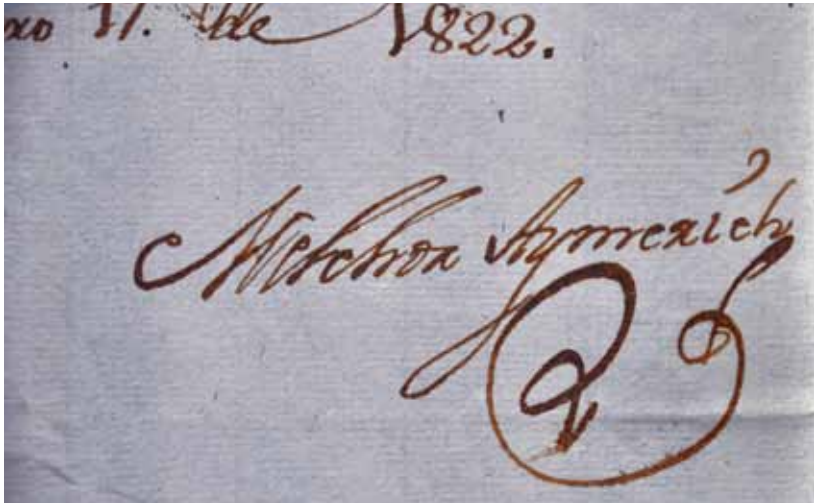 ro 17. de 1822.
Melchor Aymerich